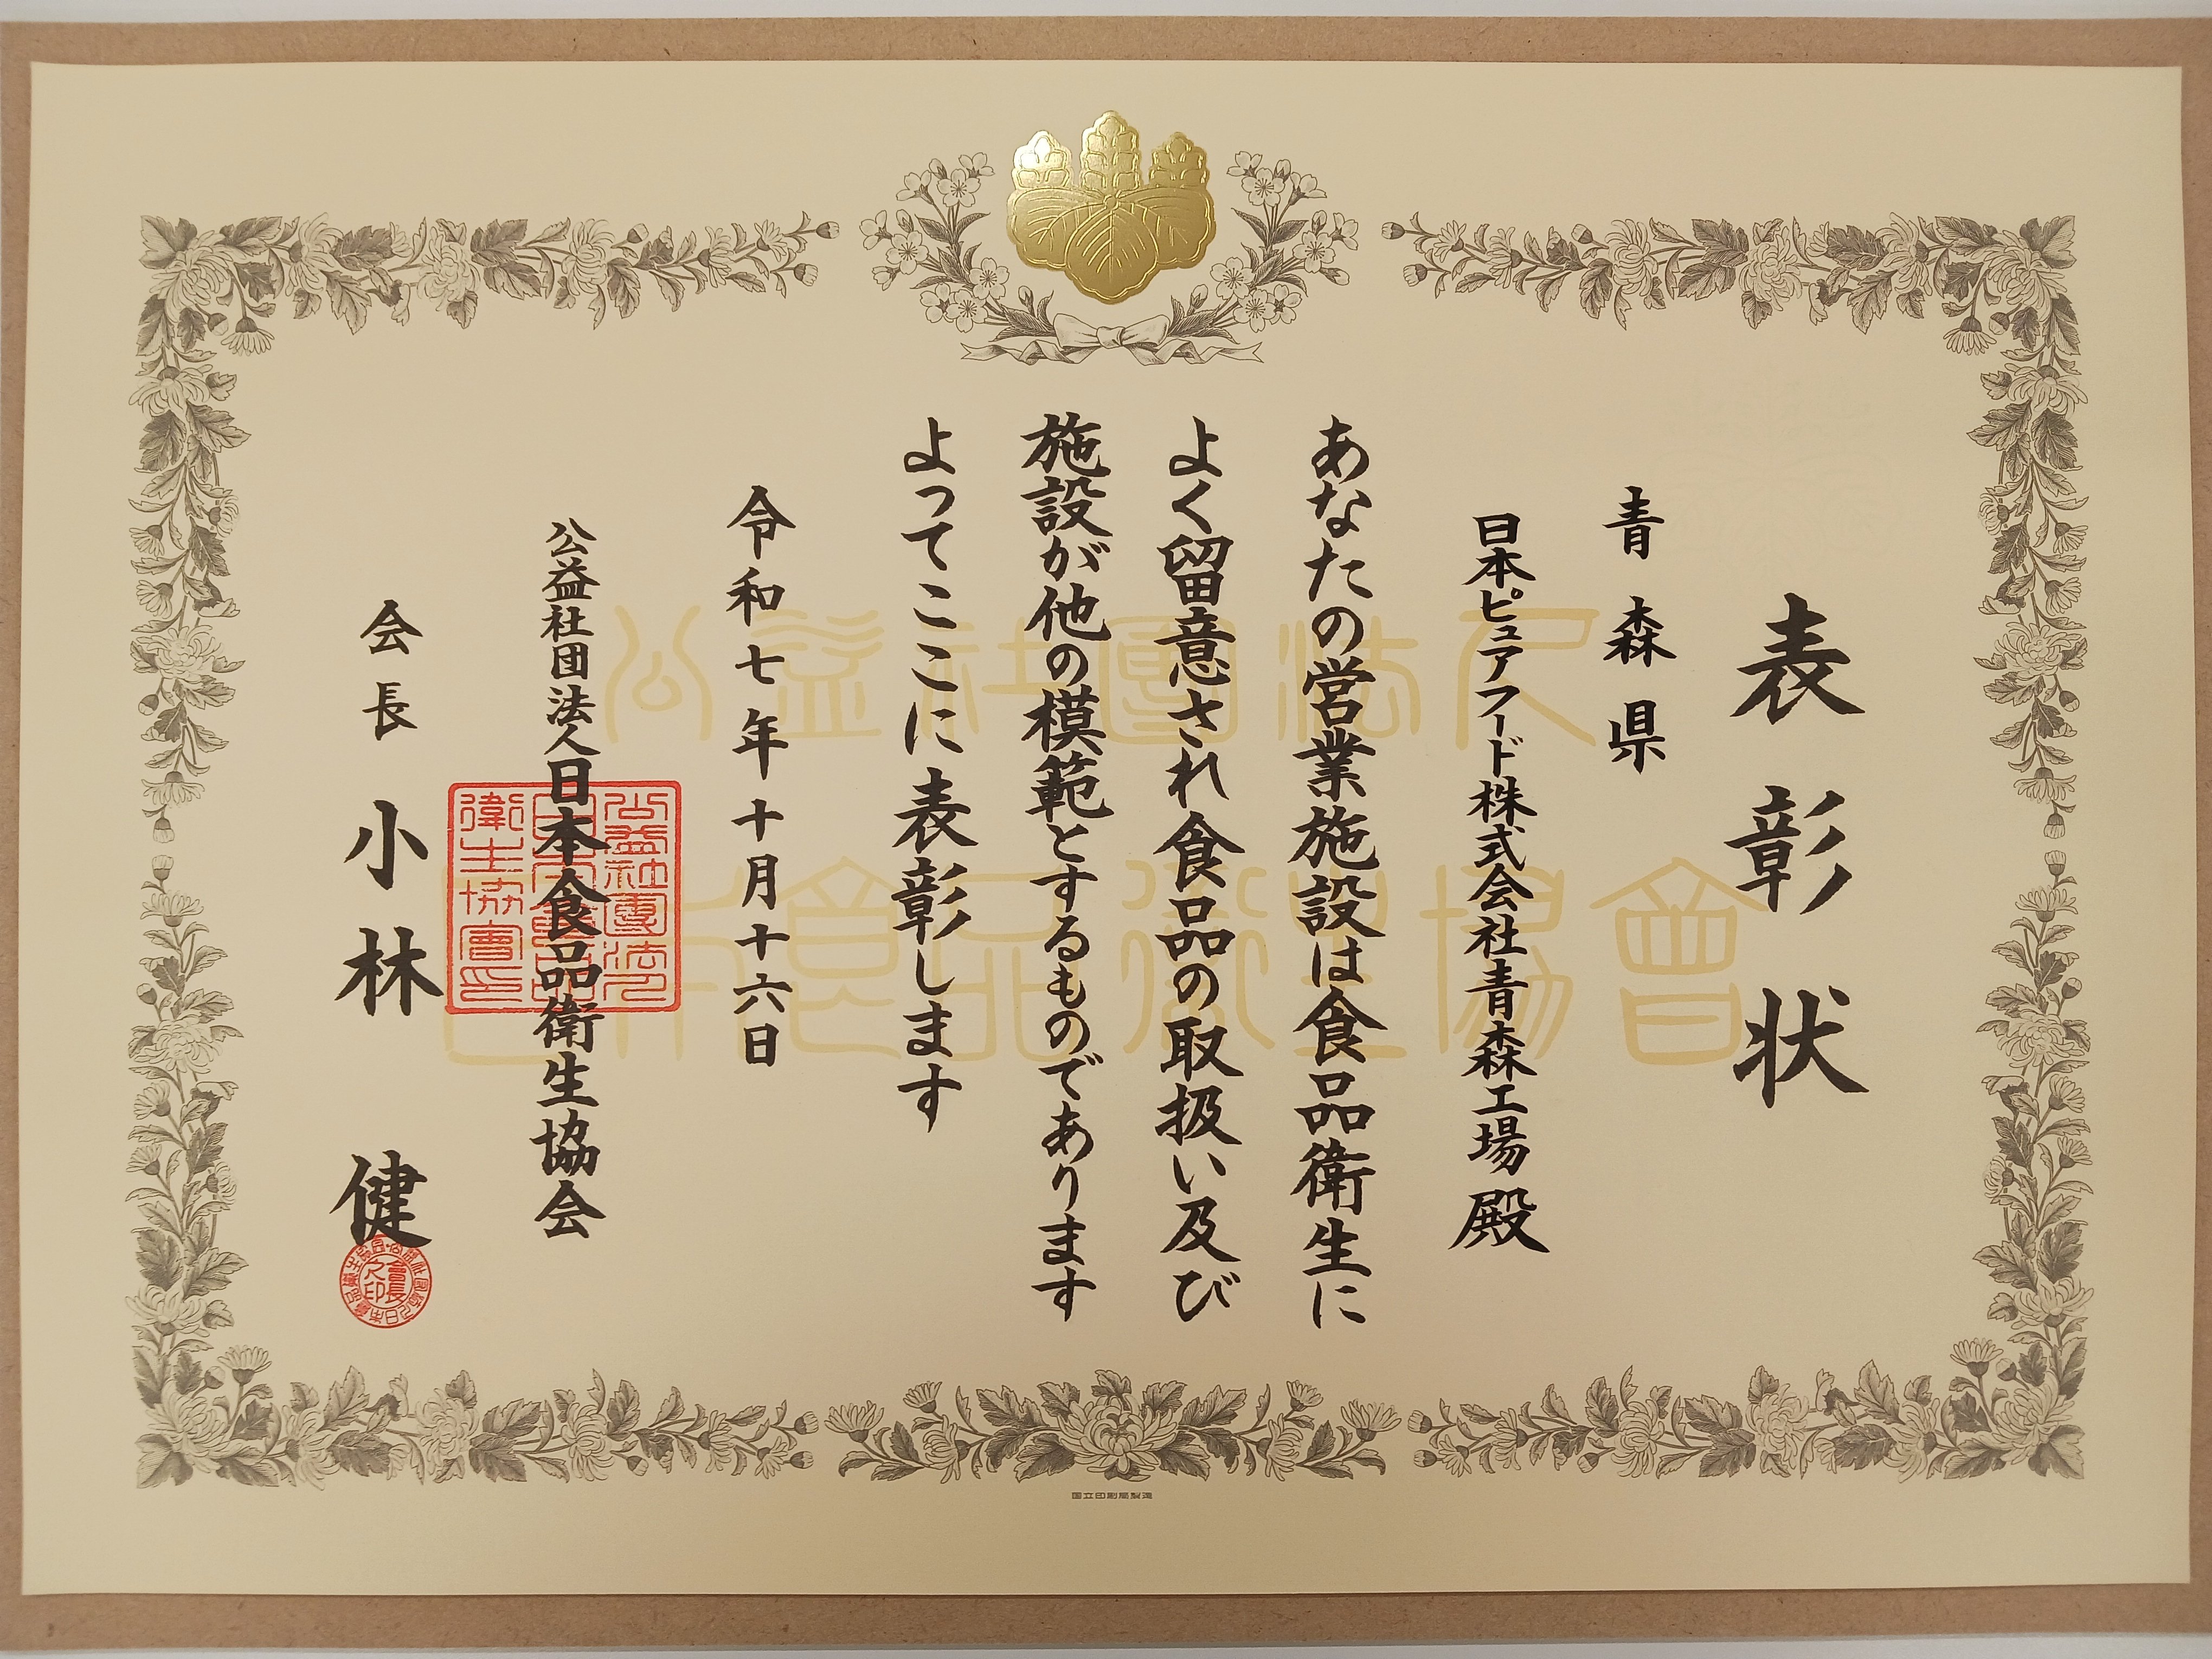 表彰状
青森県
日本ピュアフード株式会社青森工場殿
あなたの営業施設は食品衛生に
よく留意され食品の取扱い及び
施設が他の模範とするものであります
よってここに表彰します
令和七年十月十六日
公益社団法人日本食品衛生協会
会長 小林 健
公益社團法人
日本食品衛生協會
公益社團法人日本食品衛生協會印
會長之印
国立印刷局製造